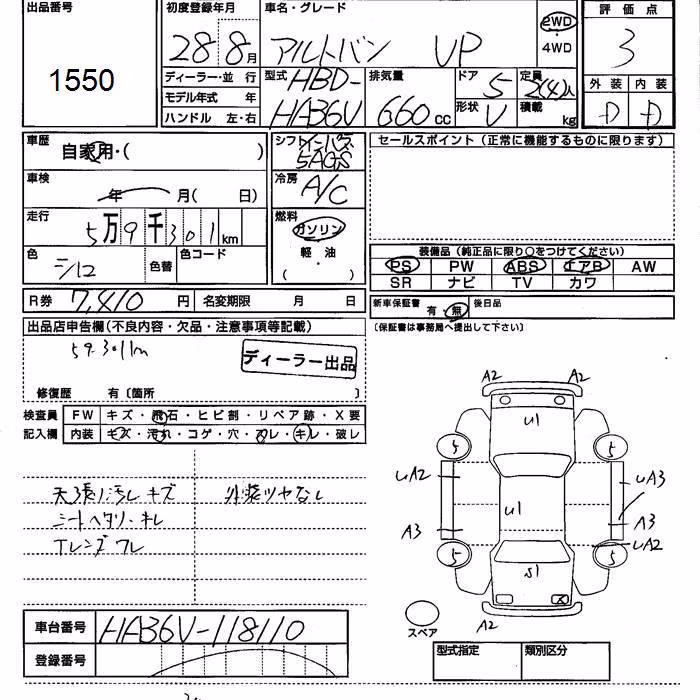 出品番号 初度登録年月 車名・グレード 評価点
1550 28 8月 アルトバン VP 2WD ・ 4WD 3
ディーラー・並 行 型式 排気量 ドア 定員 外装 内装
モデル年式 年 HBD- 5 2(4)人
ハンドル 左・右 HA36V 660cc 形状 V 積載 kg D D
車歴 自家用・( ) シフト インパネ 5AGS
セールスポイント(正常に機能するものに限ります)
車検 年 月( 日) 冷房 A/C
走行 5万9千301km 燃料 ガソリン
軽・油
( )
色 シバ 色替 色コード
装備品(純正品に限り○をつけてください)
PS PW ABS エアB AW
SR ナビ TV カワ
R券 7,410円 名変期限 月 日
新車保証書 有・無 後日品
(保証書は事務局へ提出して下さい)
出品店申告欄(不良内容・欠品・注意事項等記載)
59.301km ディーラー出品
修復歴 有〔箇所 〕
検査員 FW キズ・飛石・ヒビ割・リペア跡・X要
記入欄 内装 キズ・汚れ・コゲ・穴・スレ・キレ・破レ
天張り汚レ キズ 外装ツヤなし
シートヘタリ・キレ
Tレンズ ワレ
A2 A2
U1
5 5
UA2 UA3
U1
A3 A3
UA2
5 5
S1
A2
スペア
車台番号 HA36V-118110
登録番号
型式指定 類別区分